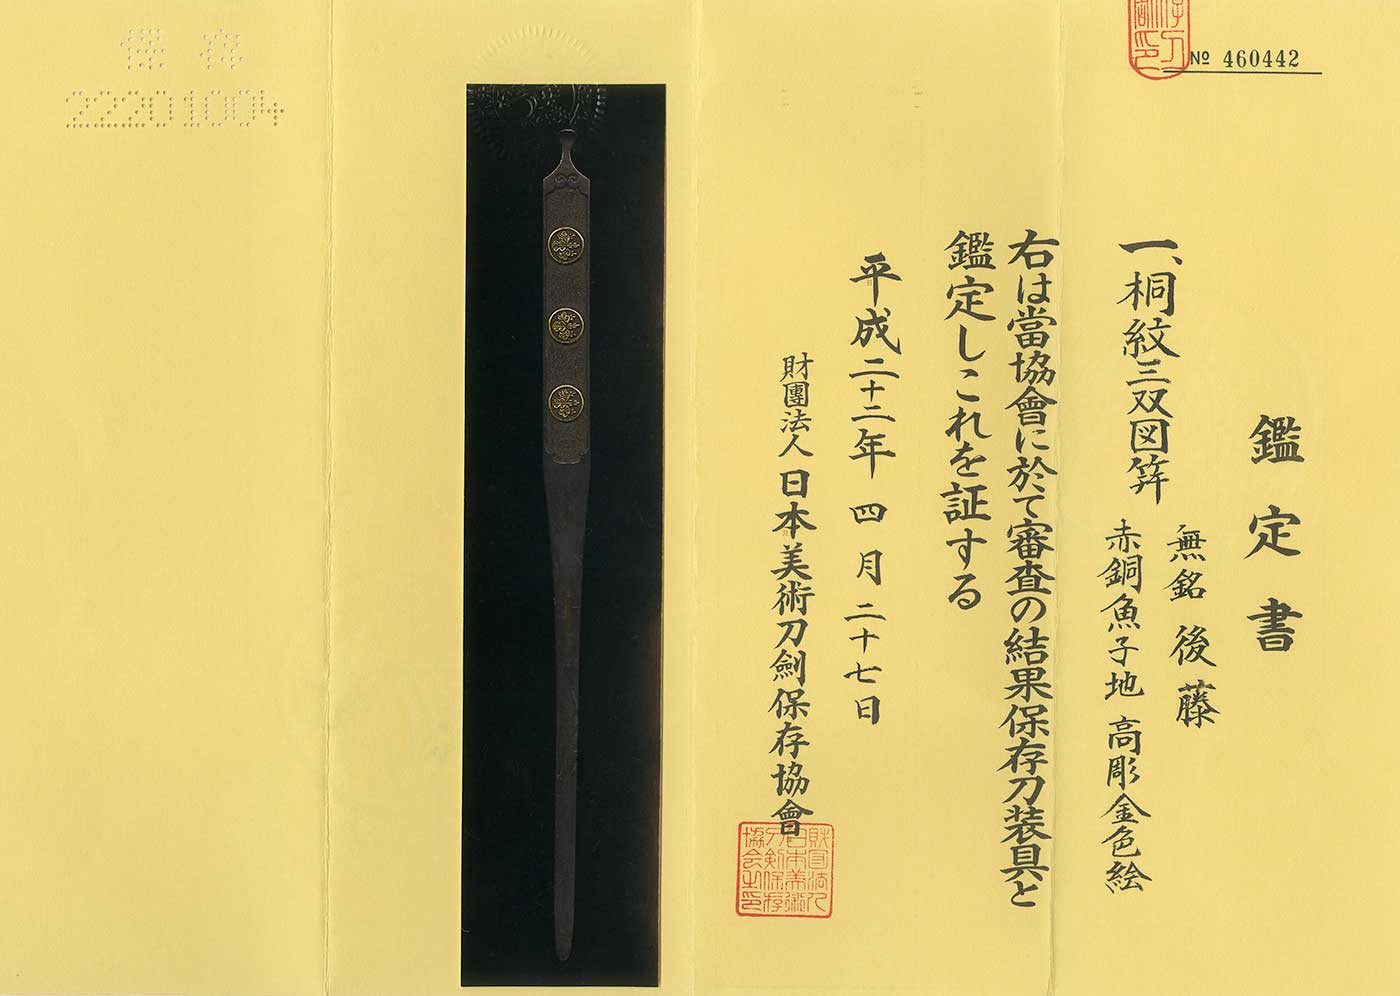 № 460442
鑑定書
一、桐紋三双図笄
無銘 後藤
赤銅魚子地 高彫金色絵
右は當協會に於て審査の結果保存刀装具と
鑑定しこれを証する
平成二十二年 四月二十七日
財團法人 日本美術刀劍保存協會
財団法人
日本美術
刀剣保存
協会之印
保存
22201004